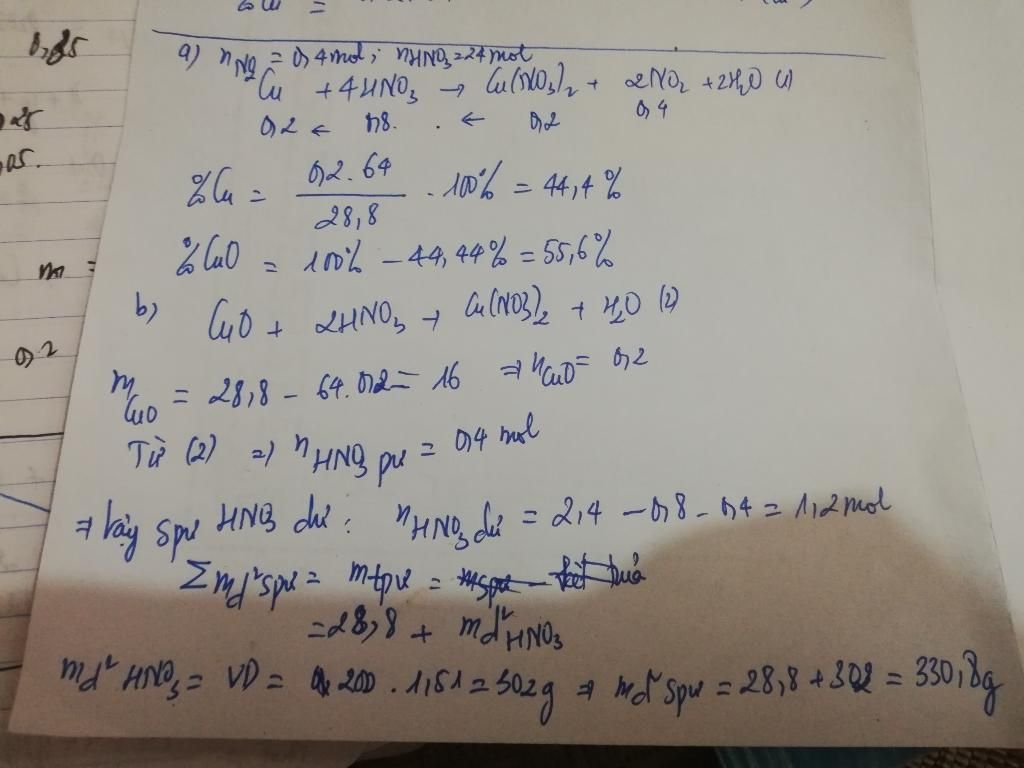 0,25
a) nNO2 = 0,4 mol ; nHNO3 = 24 mol
Cu + 4HNO3 → Cu(NO3)2 + 2NO2 + 2H2O (1)
0,2 ← 0,8 . ← 0,2 0,4
%Cu = 0,2 . 64 / 28,8 . 100% = 44,4 %
%CuO = 100% - 44,44% = 55,6%
b) CuO + 2HNO3 → Cu(NO3)2 + H2O (2)
0,2
mCuO = 28,8 - 64 . 0,2 = 16 ⇒ nCuO = 0,2
Từ (2) ⇒ nHNO3 pư = 0,4 mol
⇒ Vậy spư HNO3 dư : nHNO3 dư = 2,4 - 0,8 - 0,4 = 1,2 mol
Σ md² spư = mtpư =
= 28,8 + md² HNO3
md² HNO3 = VD = 200 . 1,51 = 302g ⇒ md² spư = 28,8 + 302 = 330,8g